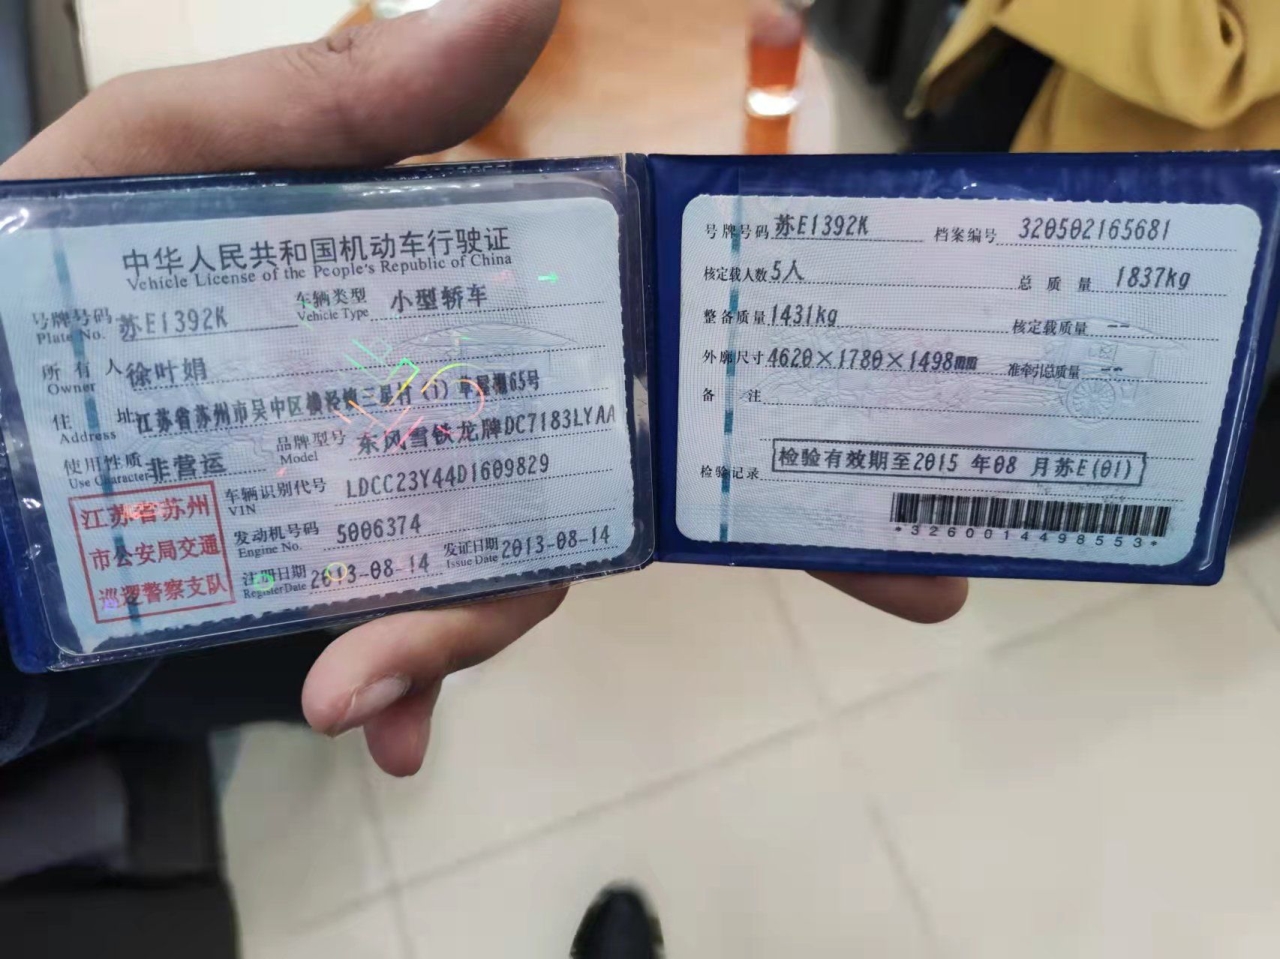 中华人民共和国机动车行驶证
Vehicle License of the People's Republic of China
号牌号码 苏E1392K 车辆类型 小型轿车
Plate No. Vehicle Type
所有人 徐叶娟
Owner
住址 江苏省苏州市吴中区横泾镇三星村（1）草屋潮65号
Address
使用性质 非营运 品牌型号 东风雪铁龙牌DC7183LYAA
Use Character Model
江苏省苏州
市公安局交通
巡逻警察支队
车辆识别代号 LDCC23Y44D1609829
VIN
发动机号码 5006374
Engine No.
注册日期 2013-08-14 发证日期 2013-08-14
Register Date Issue Date
号牌号码 苏E1392K 档案编号 320502165681
核定载人数 5人 总质量 1837kg
整备质量 1431kg 核定载质量 --
外廓尺寸 4620×1780×1498mm 准牵引总质量 --
备注
检验记录 检验有效期至2015 年08 月苏E(01)
*3260014498553*